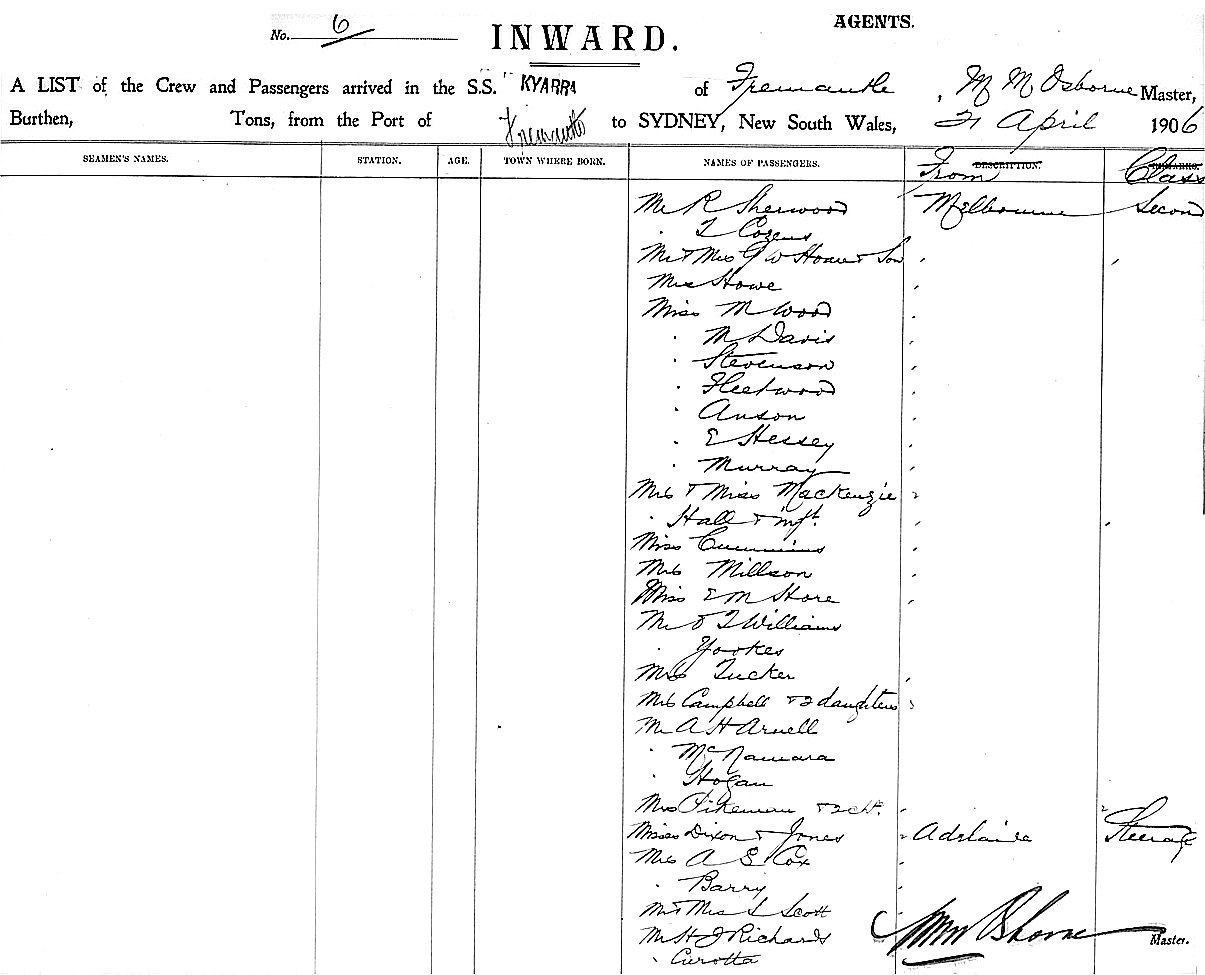 No. 6 AGENTS.
INWARD.
A LIST of the Crew and Passengers arrived in the S.S. " KYARRA of Fremantle, M M Osborne Master,
Burthen, Tons, from the Port of Fremantle to SYDNEY, New South Wales, 21 April 1906
SEAMEN'S NAMES. STATION. AGE. TOWN WHERE BORN. NAMES OF PASSENGERS. DESCRIPTION. From REMARKS. Class
Mr R Sherwood Melbourne Second
" T Cozens
Mr & Mrs G W Howe & Son
Mrs Howe
Miss M Wood
" M Davis
" Stevenson
" Fleetwood
" Anson
" E Hessey
" Murray
Mrs & Miss MacKenzie
" Hall & inft.
Miss Cummins
Mrs Millson
Miss E M Hore
Mr O T Williams
" Yookes
Mrs Tucker
Mrs Campbell & 2 daughters
Mr A H Arnell
" McNamara
" Hogan
Mrs Pikeman & 2 ch.
Misses Dixon & Jones Adelaide Steerage
Mrs A E Cox
" Barry
Mr & Mrs L Scott
Mr H J Richards Wm Osborne Master.
" Curotta